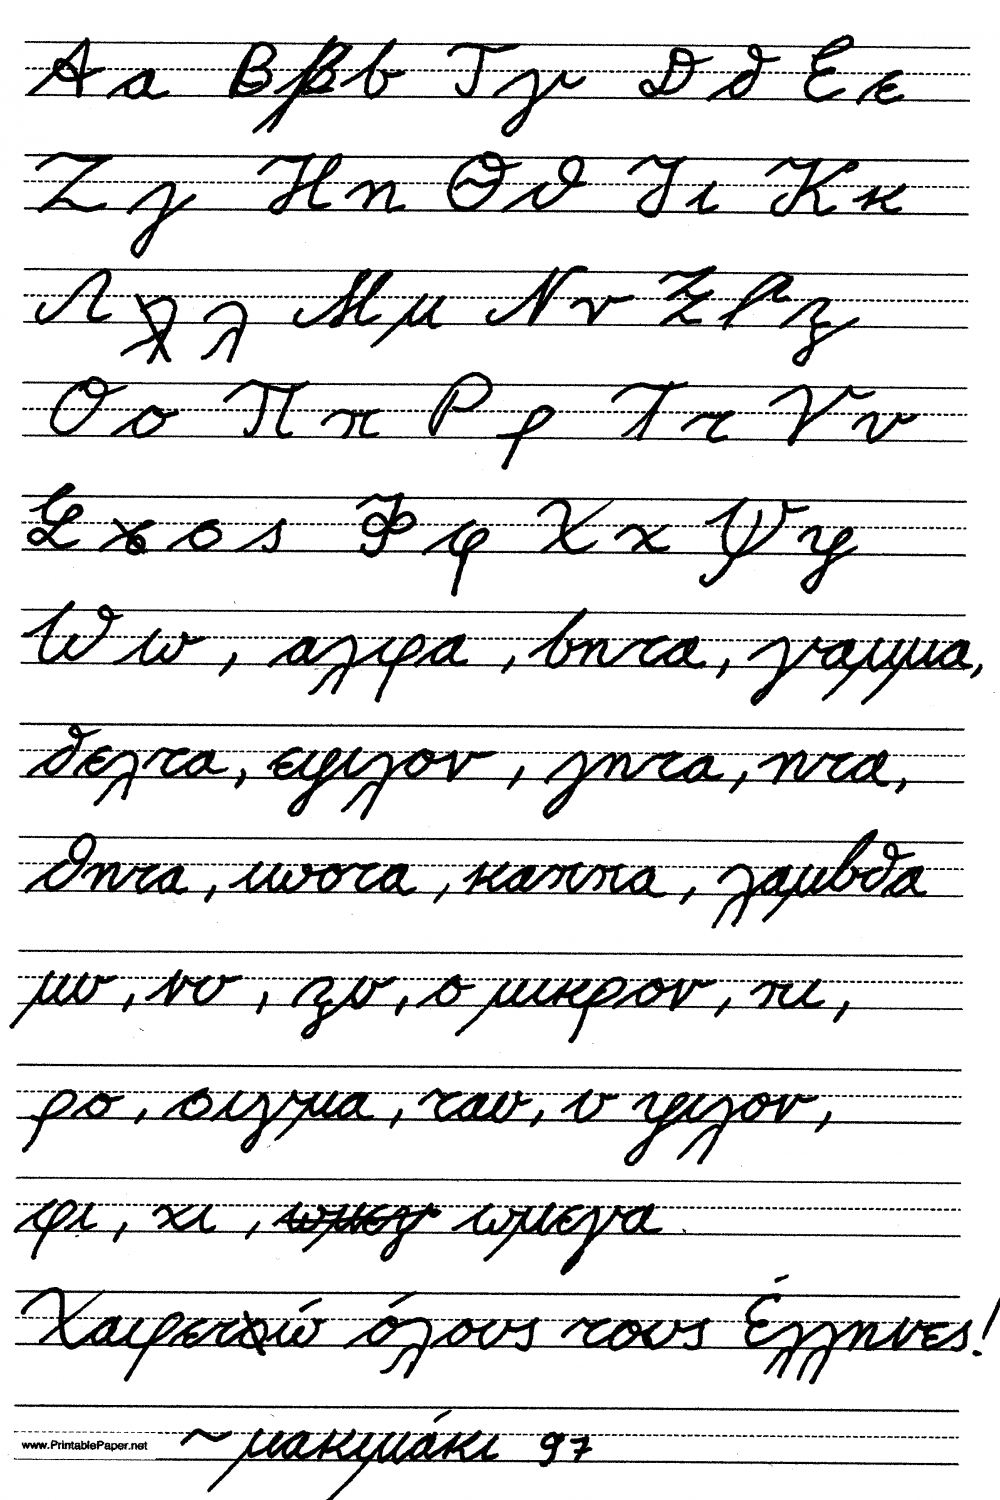 Α α Β β β Γ γ Δ δ Ε ε
Ζ ζ Η η Θ θ Ι ι Κ κ
Λ λ λ Μ μ Ν ν Ξ ξ
Ο ο Π π Ρ ρ Τ τ Υ υ
Σ σ ς Φ φ Χ χ Ψ ψ
Ω ω, αλφα, βητα, γαμμα,
δελτα, εψιλον, ζητα, ητα,
θητα, ιωστα, καππα, λαμβδα
μυ, νυ, ξυ, ο μικρον, πι,
ρο, σιγμα, ταυ, υ ψιλον,
φι, χι, ωμεγ ωμεγα
Χαιρετώ όλους τους Έλληνες!
www.PrintablePaper.net ~ μακιμάκι 97